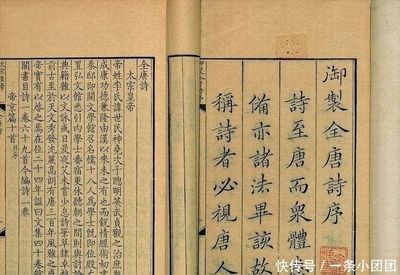 御製全唐詩序
詩至唐而眾體
備亦諸法畢該故
稱詩者必視唐人
全唐詩
太宗皇帝
帝姓李氏諱世民神堯次子聰明英武貞觀之治庶幾
成康功德兼隆由漢以來未之有也而銳情經術初建
秦邸即開文學館召名儒十八人為學士既即位殿左
置弘文館悉引內學士番宿更休聽朝之間則與討論
典籍雜以文詠或日昃夜艾未嘗少怠詩筆草隸卓越
前古至於天文秀發沈麗高朗有唐三百年風雅之盛
帝實有以啟之焉在位二十四年諡曰文集四十卷
館閣書目詩一卷六十九首今編詩一卷
帝京篇十首
快传号 / 一条小团团